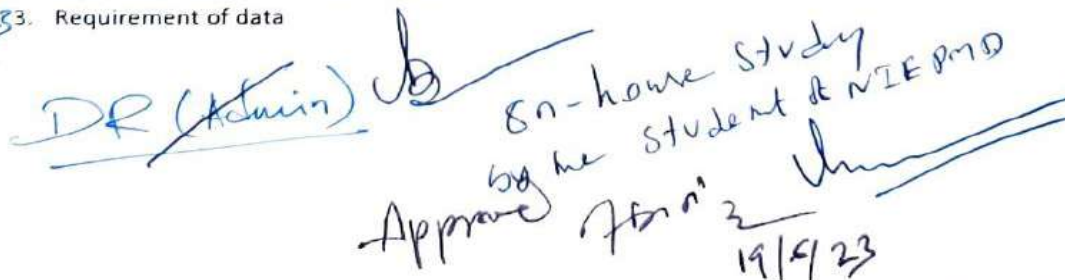 3. Requirement of data
DR (Admin)
on-house study
by the student at NIEPMD
Approve
19/5/23